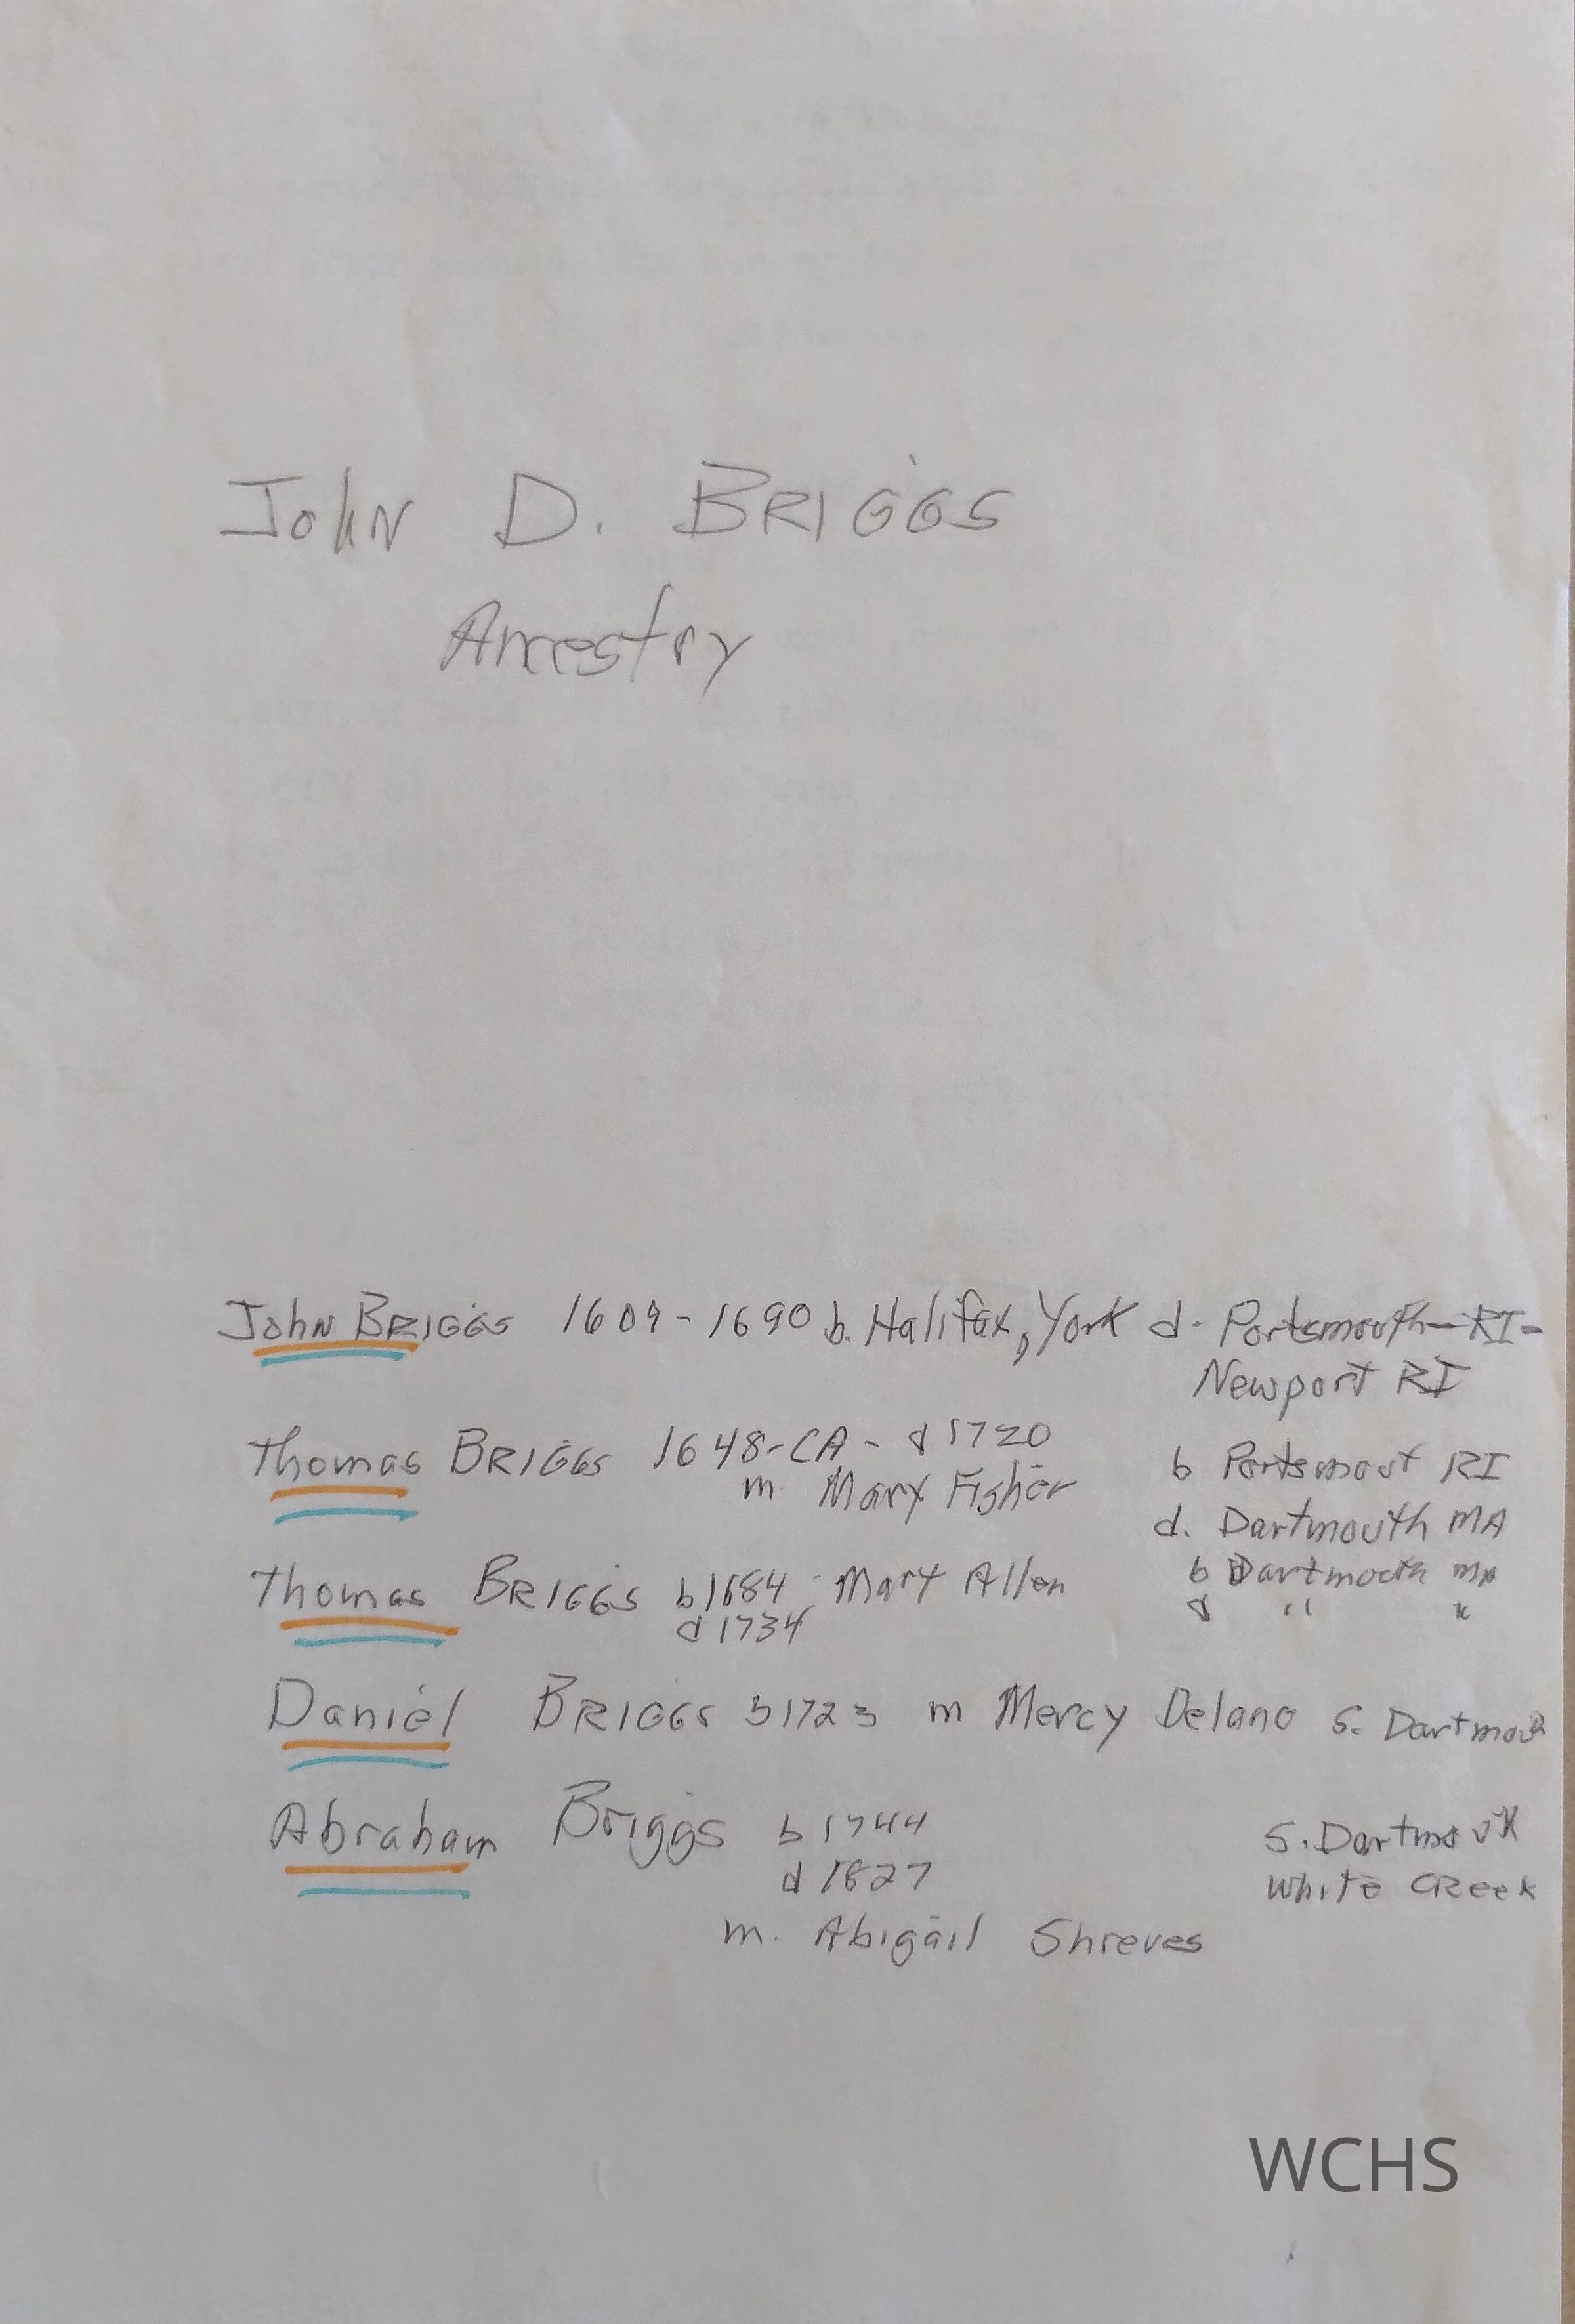 John D. BRIGGS
Ancestry
John BRIGGS 1609-1690 b. Halifax, York d. Portsmouth-RI-
Newport RI
Thomas BRIGGS 1648-CA- d 1720
m. Mary Fisher
b Portsmout RI
d. Dartmouth MA
Thomas BRIGGS b 1684 Mary Allen b Dartmouth MA
d 1734 d " "
Daniel BRIGGS b 1723 m Mercy Delano S. Dartmouth
Abraham Briggs b 1744 S. Dartmouth
d 1827 White Creek
m. Abigail Shreves
WCHS